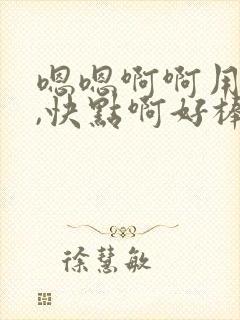 嗯嗯啊啊用
,快點啊好棒
徐慧敏